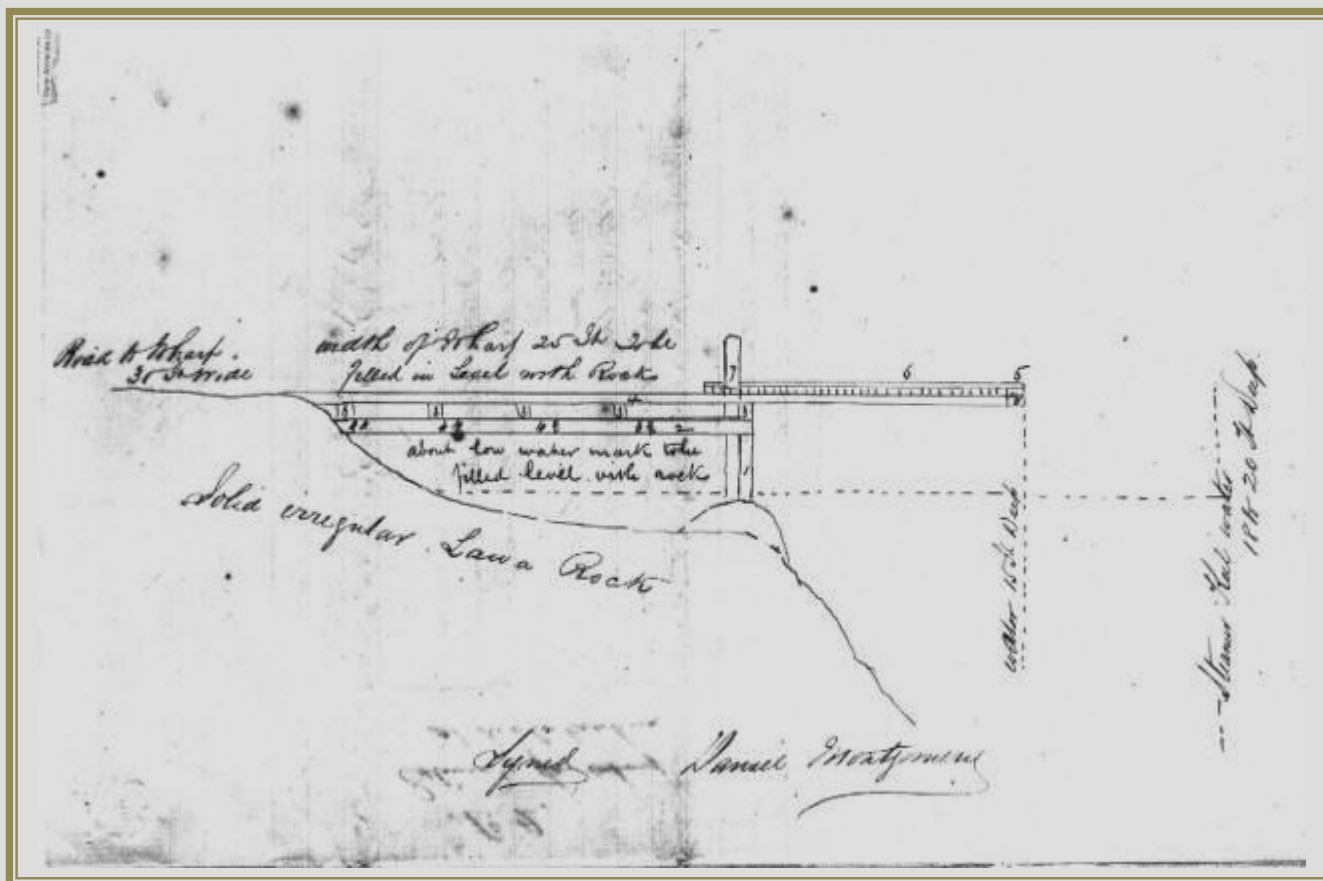 Road to Wharf.
30 Ft Wide
width of Wharf 25 Ft To be
filled in Level with Rock
7
6
5
4
2
1
about low water mark to be
filled level with rock
Solid irregular Lava Rock
water 15 Ft Deep
Steamer Keel water
18 to 20 Ft Deep
Syned Daniel Montgomerie